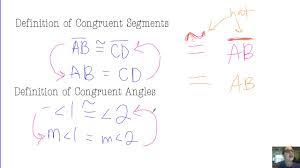 Definition of Congruent Segments
hat
AB ≅ CD
≅ AB
AB = CD
= AB
Definition of Congruent Angles
∠1 ≅ ∠2
m∠1 = m∠2